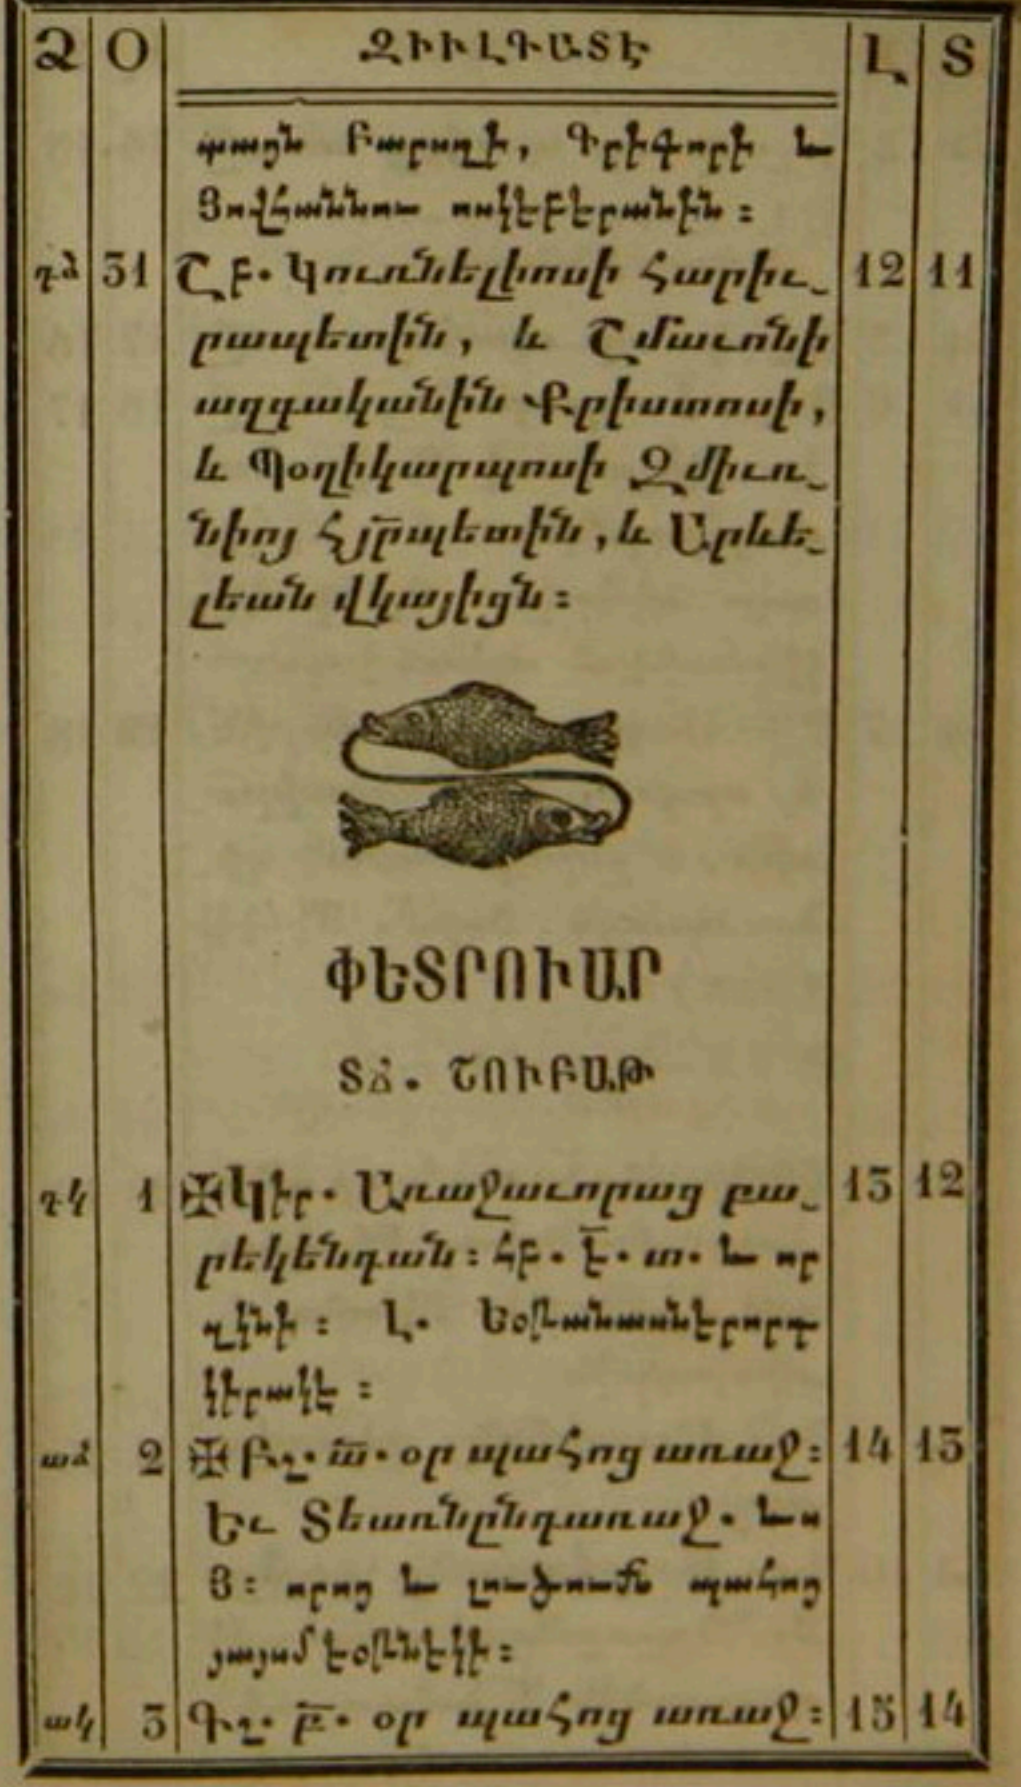 Ձ Օ ԶԻՒԼԳԱՏԷ Լ Տ
պայն Բարսղի, Գրիգորի և
Յովհաննու ոսկեբերանին ։
դձ 31 Շբ. Կուռնելիոսի Հարիւ֊ 12 11
րապետին, և Շմաւոնի
ազգականին Քրիստոսի,
և Պօղիկարպոսի Զմիւռ֊
նիոյ Հյրպետին, և Արևե֊
լեան վկայիցն ։
ՓԵՏՐՈՒԱՐ
ՏՃ. ՇՈՒԲԱԹ
դկ 1 ✠ Կիր. Առաջաւորաց բա֊ 13 12
րեկենդան ։ հբ. է. տ. և որ
զկնի ։ Լ. Եօթանասներորդ
կիրակէ ։
աձ 2 ✠ Բշ. ա. օր պահոց առաջ ։ 14 13
Եւ Տեառնընդառաջ. և ս
Յ ։ որոց և լուծումն պահոց
յայսմ եօթնեկի ։
ակ 3 Գշ. բ. օր պահոց առաջ ։ 15 14